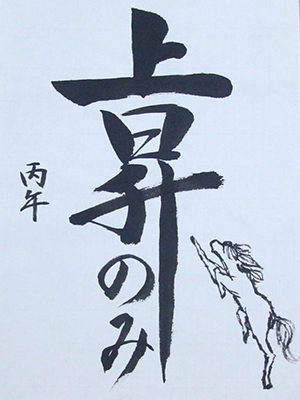 上昇のみ
丙午